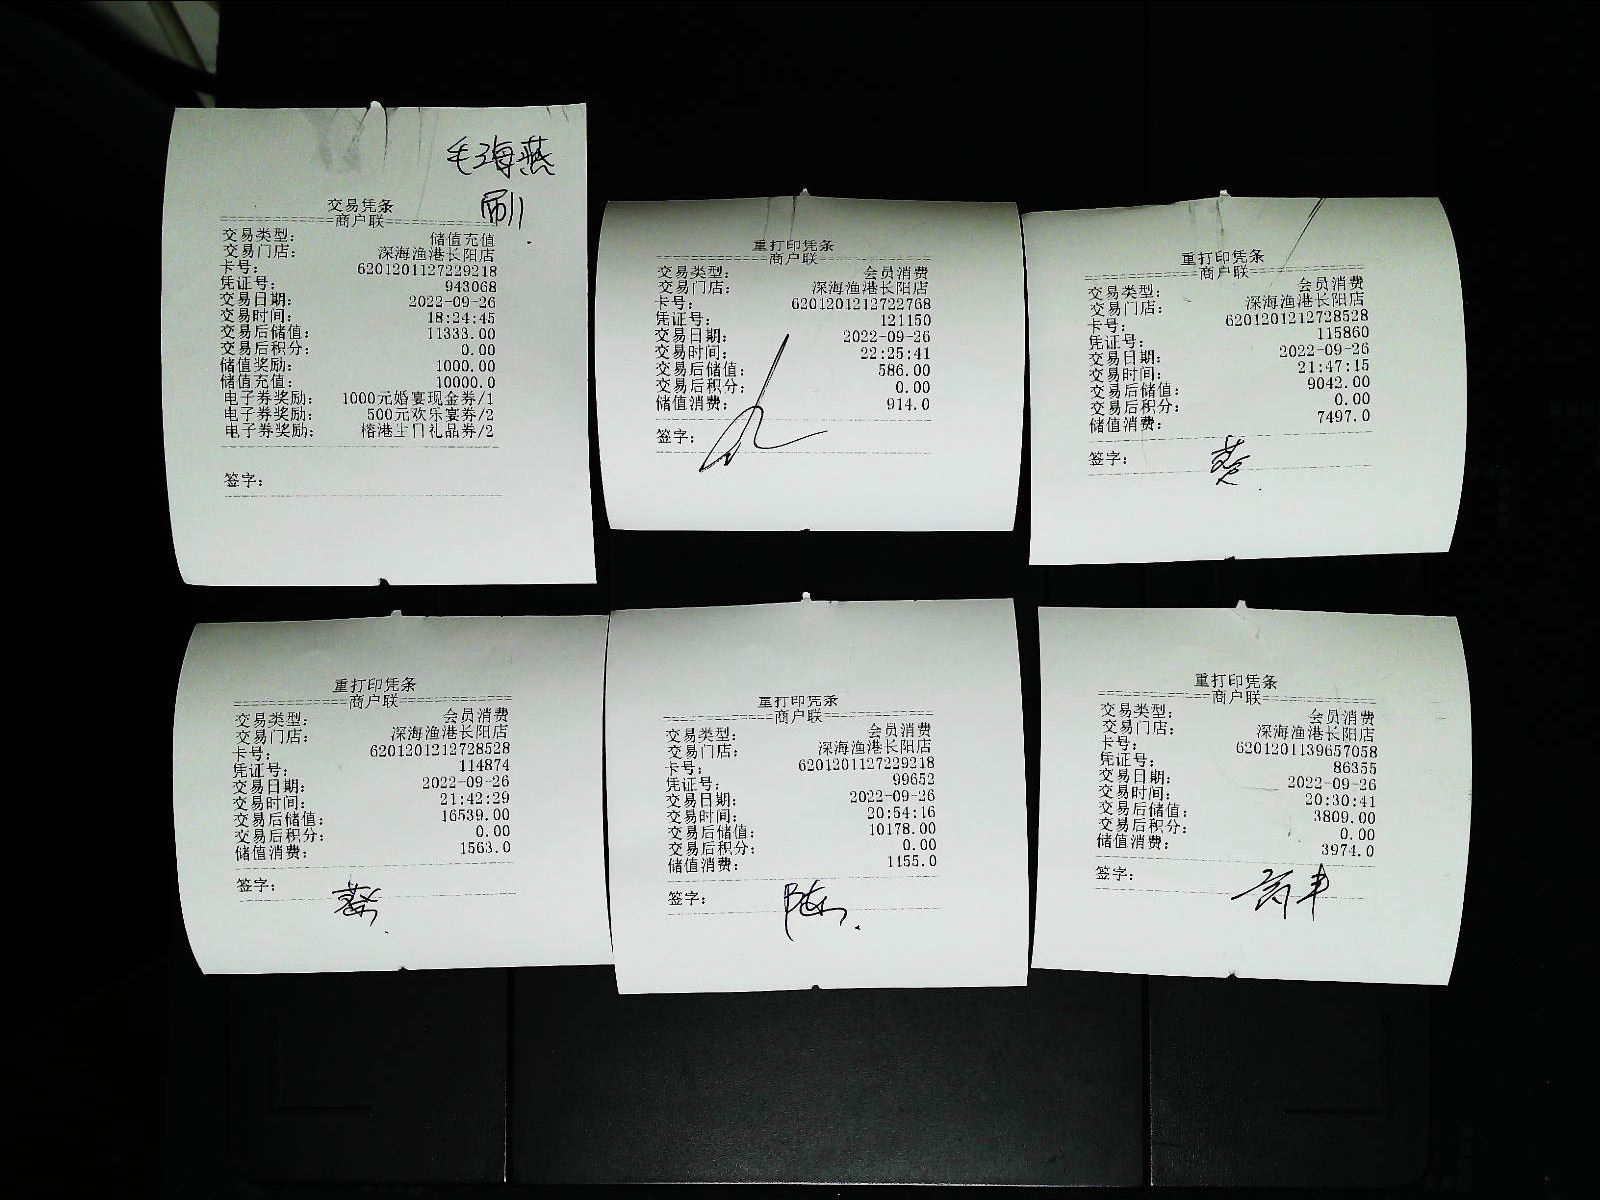 毛海燕
刷
交易凭条
商户联
交易类型: 储值充值
交易门店: 深海渔港长阳店
卡号: 6201201127229218
凭证号: 943068
交易日期: 2022-09-26
交易时间: 18:24:45
交易后储值: 11333.00
交易后积分: 0.00
储值奖励: 1000.00
储值充值: 10000.0
电子券奖励: 1000元婚宴现金券/1
电子券奖励: 500元欢乐宴券/2
电子券奖励: 榕港生日礼品券/2
签字:
重打印凭条
商户联
交易类型: 会员消费
交易门店: 深海渔港长阳店
卡号: 6201201212722768
凭证号: 121150
交易日期: 2022-09-26
交易时间: 22:25:41
交易后储值: 586.00
交易后积分: 0.00
储值消费: 914.0
签字:
重打印凭条
商户联
交易类型: 会员消费
交易门店: 深海渔港长阳店
卡号: 6201201212728528
凭证号: 115860
交易日期: 2022-09-26
交易时间: 21:47:15
交易后储值: 9042.00
交易后积分: 0.00
储值消费: 7497.0
签字:
重打印凭条
商户联
交易类型: 会员消费
交易门店: 深海渔港长阳店
卡号: 6201201212728528
凭证号: 114874
交易日期: 2022-09-26
交易时间: 21:42:29
交易后储值: 16539.00
交易后积分: 0.00
储值消费: 1563.0
签字:
重打印凭条
商户联
交易类型: 会员消费
交易门店: 深海渔港长阳店
卡号: 6201201127229218
凭证号: 99652
交易日期: 2022-09-26
交易时间: 20:54:16
交易后储值: 10178.00
交易后积分: 0.00
储值消费: 1155.0
签字:
重打印凭条
商户联
交易类型: 会员消费
交易门店: 深海渔港长阳店
卡号: 6201201139657058
凭证号: 86355
交易日期: 2022-09-26
交易时间: 20:30:41
交易后储值: 3809.00
交易后积分: 0.00
储值消费: 3974.0
签字: